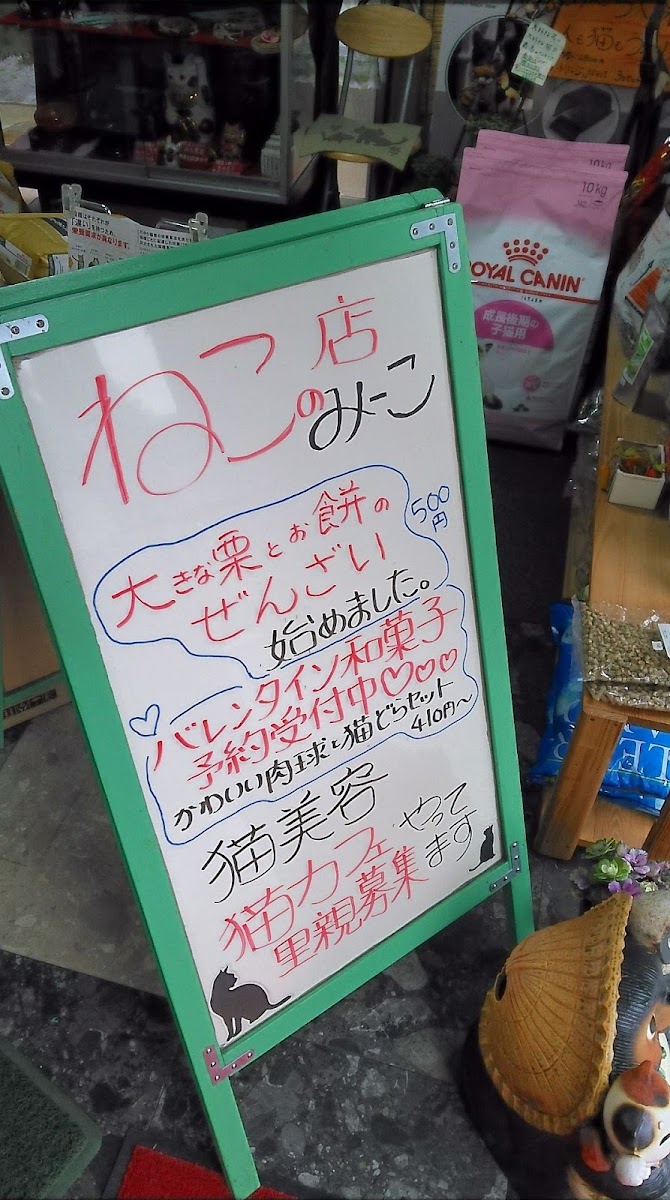 ねこの店
みーこ
大きな栗とお餅の
ぜんざい
500円
始めました。
バレンタイン和菓子
予約受付中♡♡♡
かわいい肉球と猫どらセット
410円〜
猫美容
猫カフェ やってます
里親募集
10kg
10kg
ROYAL CANIN
成長後期の
子猫用
「違い」を持つため、
栄養要求が異なります。